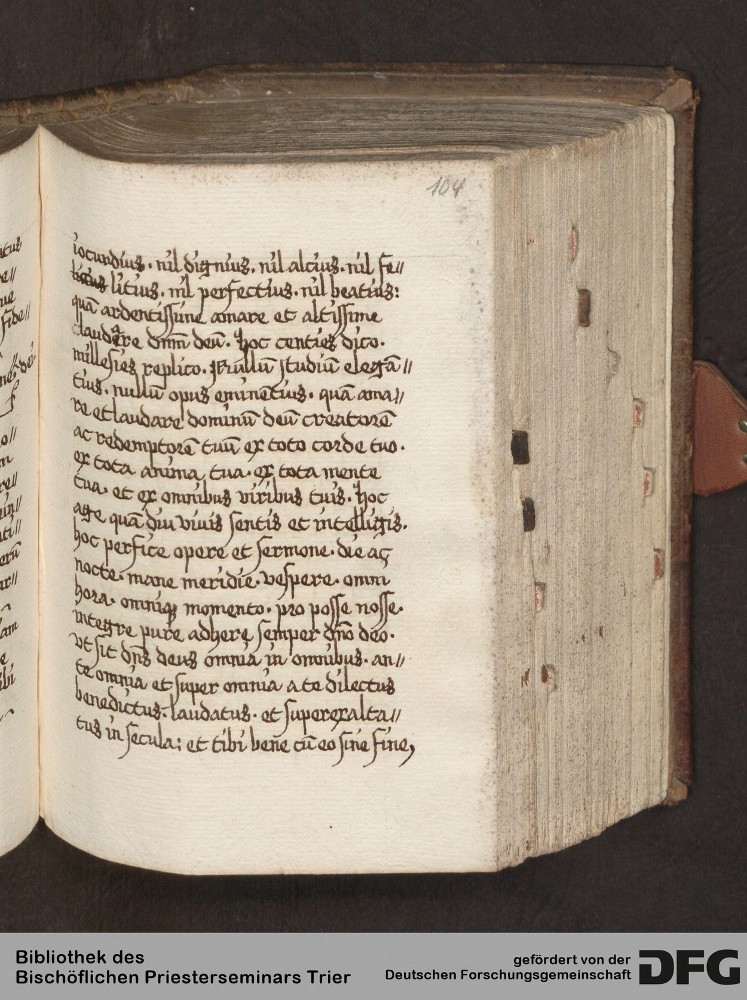 104
iocundius. nil dignius. nil alcius. nil fe//
licius litius. nil perfectius. nil beatius:
quā ardentissime amare et altissime
laudare dn̄m deū. hoc centies dico.
millesies replico. Nullū studiū elegā//
tius. nullū opus eminētius. quā ama//
re et laudare dominū deū creatorē
ac redemptorē tuū ex toto corde tuo.
ex tota anima tua. ex tota mente
tua. et ex omnibus viribus tuis. hoc
age quā diu viuis sentis et intelligis.
hoc perfice opere et sermone. die ac
nocte. mane meridie. vespere. omni
hora. omniqꝫ momento. pro posse nosse.
integre pure adhere semper dn̄o deo.
vt sit dn̄s deus omnia in omnibus. an//
te omnia et super omnia a te dilectus
benedictus. laudatus. et superexalta//
tus in secula: et tibi bene cū eo sine fine,
Bibliothek des
Bischöflichen Priesterseminars Trier
gefördert von der
Deutschen Forschungsgemeinschaft
DFG